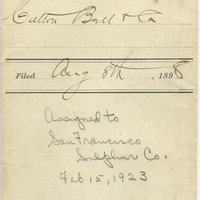 Cutton Bell & Co
Filed Aug 8th, 1898
Assigned to
San Francisco
Sulphur Co.
Feb 15, 1923